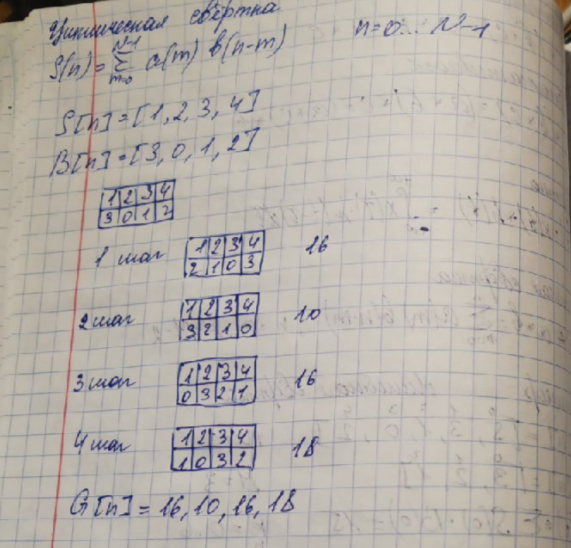 Циклическая свёртка
S(n) = Σ a(m) b(n-m) n=0... N-1
N-1
m=0
S[n] = [1, 2, 3, 4]
B[n] = [3, 0, 1, 2]
1 2 3 4
3 0 1 2
1 шаг 1 2 3 4 16
2 1 0 3
2 шаг 1 2 3 4 10
3 2 1 0
3 шаг 1 2 3 4 16
0 3 2 1
4 шаг 1 2 3 4 18
1 0 3 2
G[n] = 16, 10, 16, 18